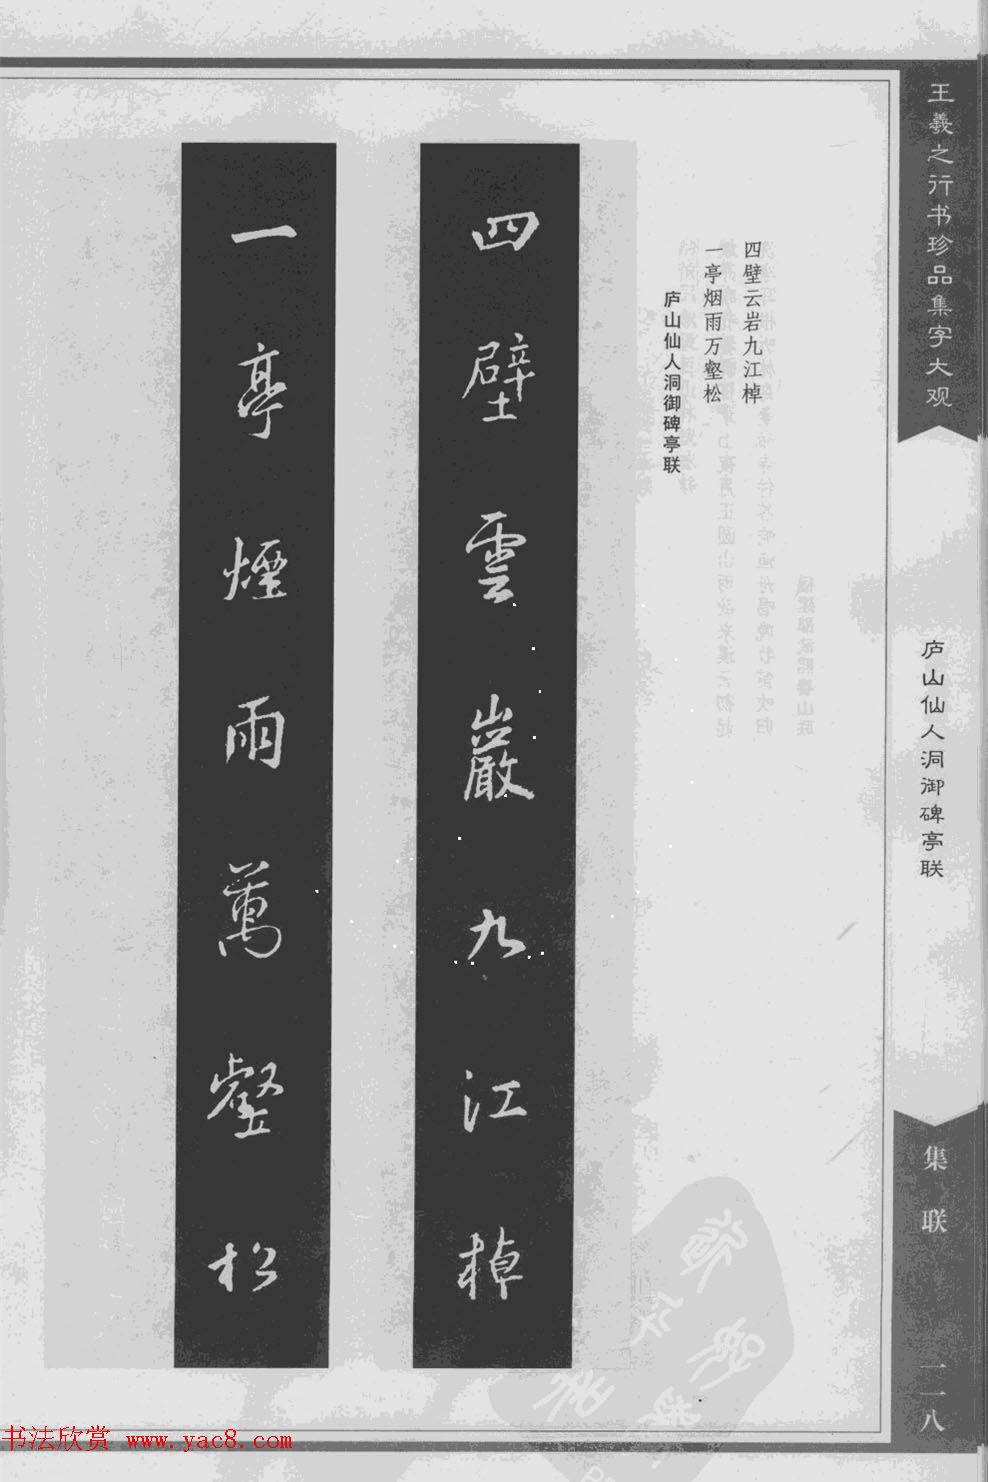 王羲之行书珍品集字大观
庐山仙人洞御碑亭联
集联
一一八
四壁云岩九江棹
一亭烟雨万壑松
庐山仙人洞御碑亭联
四壁雲巖九江棹
一亭煙雨萬壑松
书法欣赏 www.yac8.com